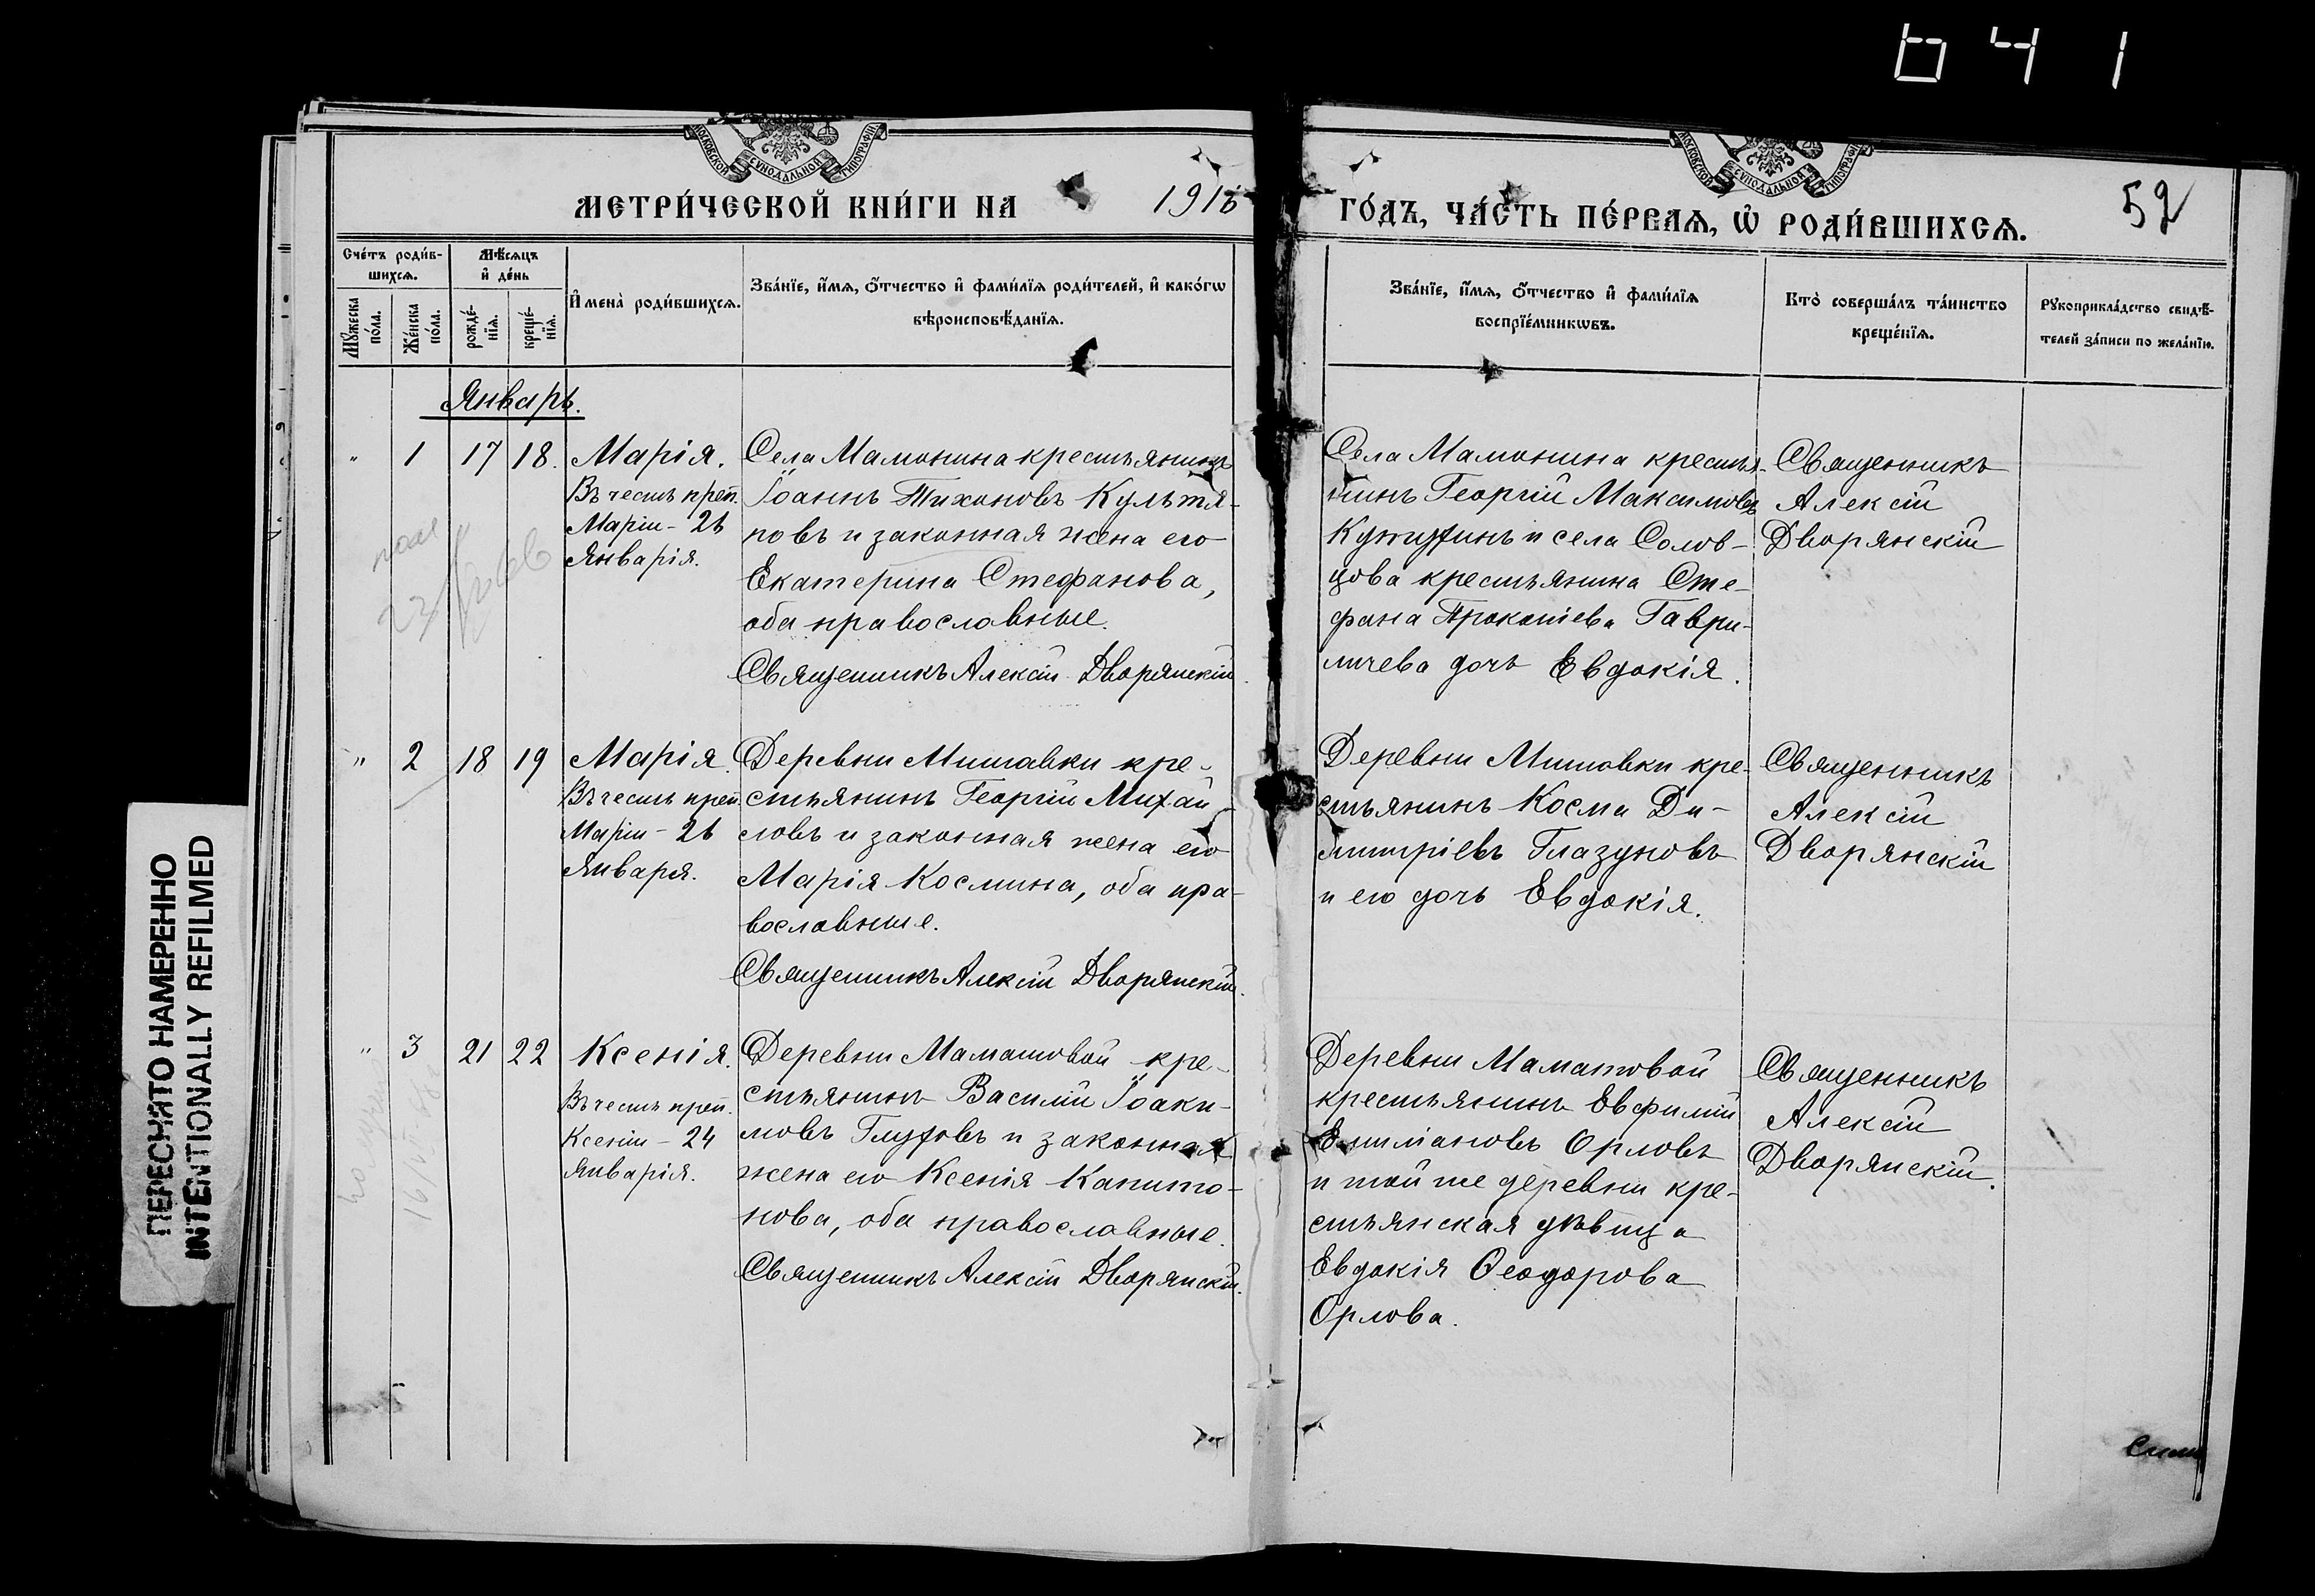 641
МОСКОВСКОЙ СѴНОДАЛЬНОЙ ТИПОГРАФІИ
МОСКОВСКОЙ СѴНОДАЛЬНОЙ ТИПОГРАФІИ
МЕТРИ́ЧЕСКОЙ КНИ́ГИ НА
ГО́ДЪ, ЧА́СТЬ ПЕ́РВАѦ, Ѽ РОДИ́ВШИХСѦ.
52
Сче́тъ роди́в-
шихсѧ.
Мꙋ́жеска
по́ла.
Же́нска
по́ла.
Мѣ́сѧцъ
и҆ де́нь
рожде́-
нїѧ.
креще́-
нїѧ.
И҆мена̀ роди́вшихсѧ.
Зва́нїе, и҆́мѧ, ѻ҆́тчество и҆ фами́лїѧ роди́телей, и҆ како́гѡ
вѣроисповѣ́данїѧ.
Зва́нїе, и҆́мѧ, ѻ҆́тчество и҆ фами́лїѧ
воспрїе́мникѡвъ.
Кто̀ соверша́лъ та́инство
креще́нїѧ.
Рꙋкоприкла́дство свидѣ́-
телей за́писи по жела́нїю.
Январь.
" 1 17 18. Марія.
Въ честь преп.
Маріи - 26
Январія.
Села Мамонина крестьянинъ
Іоаннъ Тихоновъ Культя-
повъ и законная жена его
Екатерина Стефанова,
оба православные.
Священникъ Алексій Дворянскій.
Села Мамонина крестья-
нинъ Георгій Максимовъ
и села Солов-
цова крестьянина Сте-
фана Прокопіева Гаври-
личева дочь Евдокія.
Священникъ
Алексій
Дворянскій
" 2 18 19 Марія.
Въ честь преп.
Маріи - 26
Января.
Деревни Мишавки кре-
стьянинъ Георгій Михай-
ловъ и законная жена его
Марія Космина, оба пра-
вославные.
Священникъ Алексій Дворянскій.
Деревни Мишовки кре-
стьянинъ Косма Ди-
митріевъ Глазуновъ
и его дочь Евдокія.
Священникъ
Алексій
Дворянскій
" 3 21 22 Ксенія.
Въ честь преп.
Ксеніи - 24
Январія.
Деревни Маматовой кре-
стьянинъ Василій Іоаки-
мовъ Глуховъ и законная
жена его Ксенія Капито-
нова, оба православные.
Священникъ Алексій Дворянскій.
Деревни Маматовой
крестьянинъ Евфимій
Емиліановъ Орловъ
и той же деревни кре-
стьянская дѣвица
Евдокія Ѳеодорова
Орлова.
Священникъ
Алексій
Дворянскій.
ПЕРЕСНЯТО НАМЕРЕННО
INTENTIONALLY REFILMED